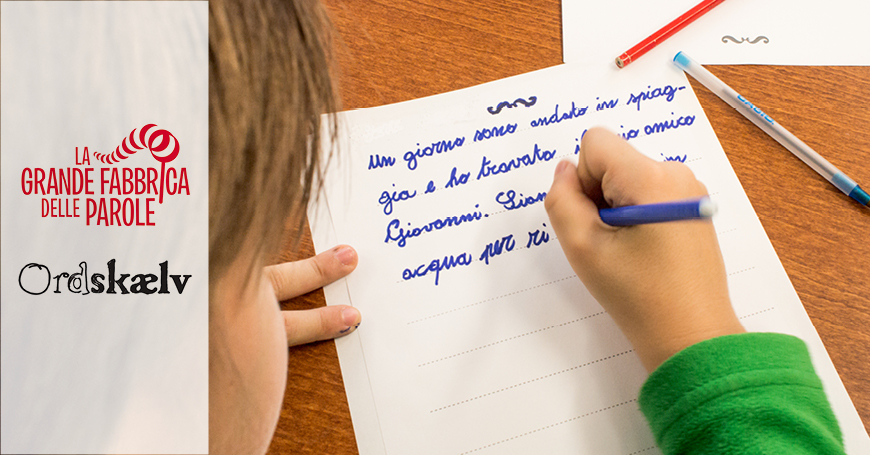 LA
GRANDE FABBRICA
DELLE PAROLE
Ordskælv
un giorno sono andato in spiag-
gia e ho trovato amico
Giovanni. in
acqua per